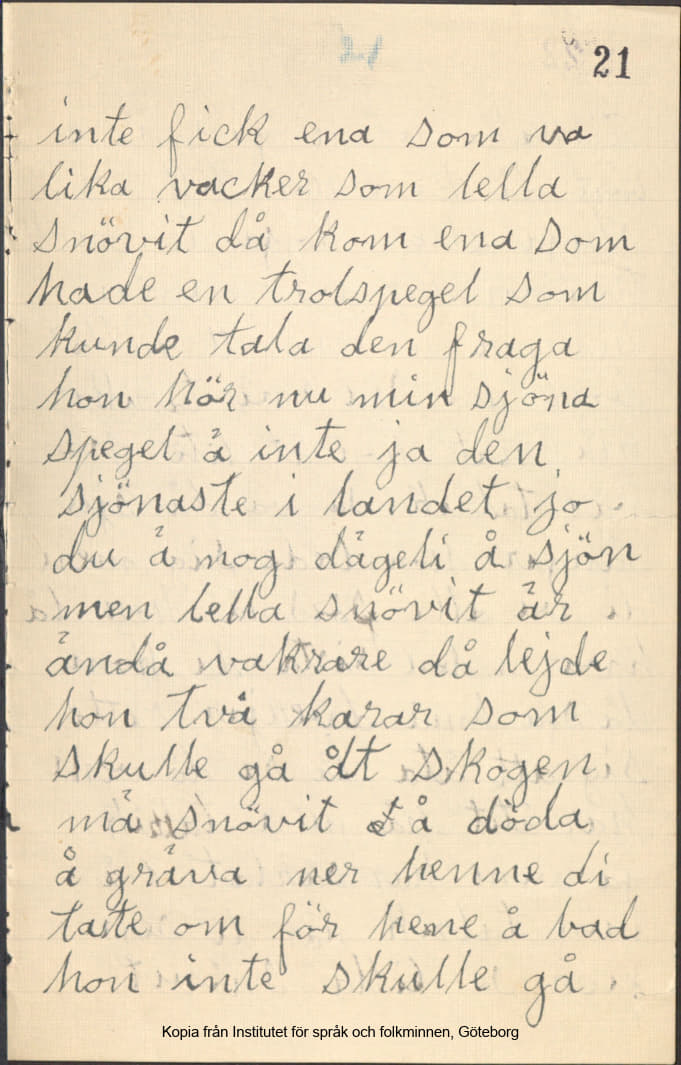 21
inte fick ena som va
lika vacker som lella
snövit då kom ena som
hade en trolspegel som
kunde tala den fraga
hon hör nu min sjöna
spegel ä inte ja den
sjönaste i landet jo
du ä nog dägeli å sjön
men lella snövit är
ändå vakrare då lejde
hon två karar som
skulle gå åt skogen
mä snövit å döda
å gräva ner henne di
taste om för hene å bad
hon inte skulle gå
Kopia från Institutet för språk och folkminnen, Göteborg